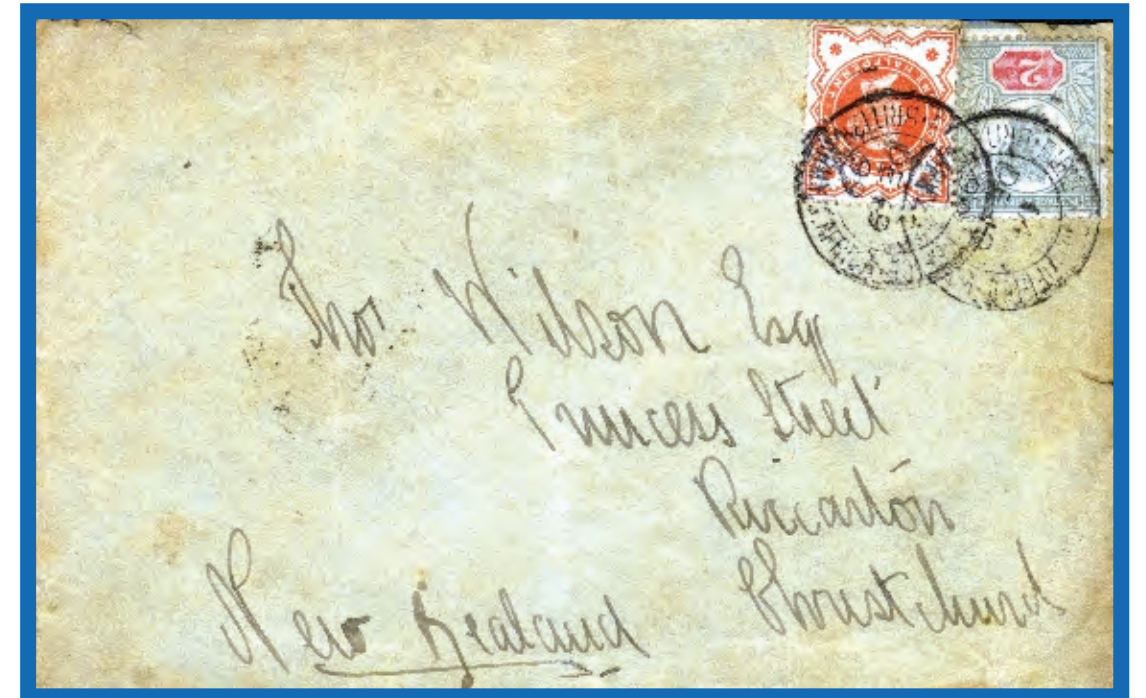 Thos. Wilson Esq
Princess Street
Riccarton
Christchurch
New Zealand
HALFPENNY
2